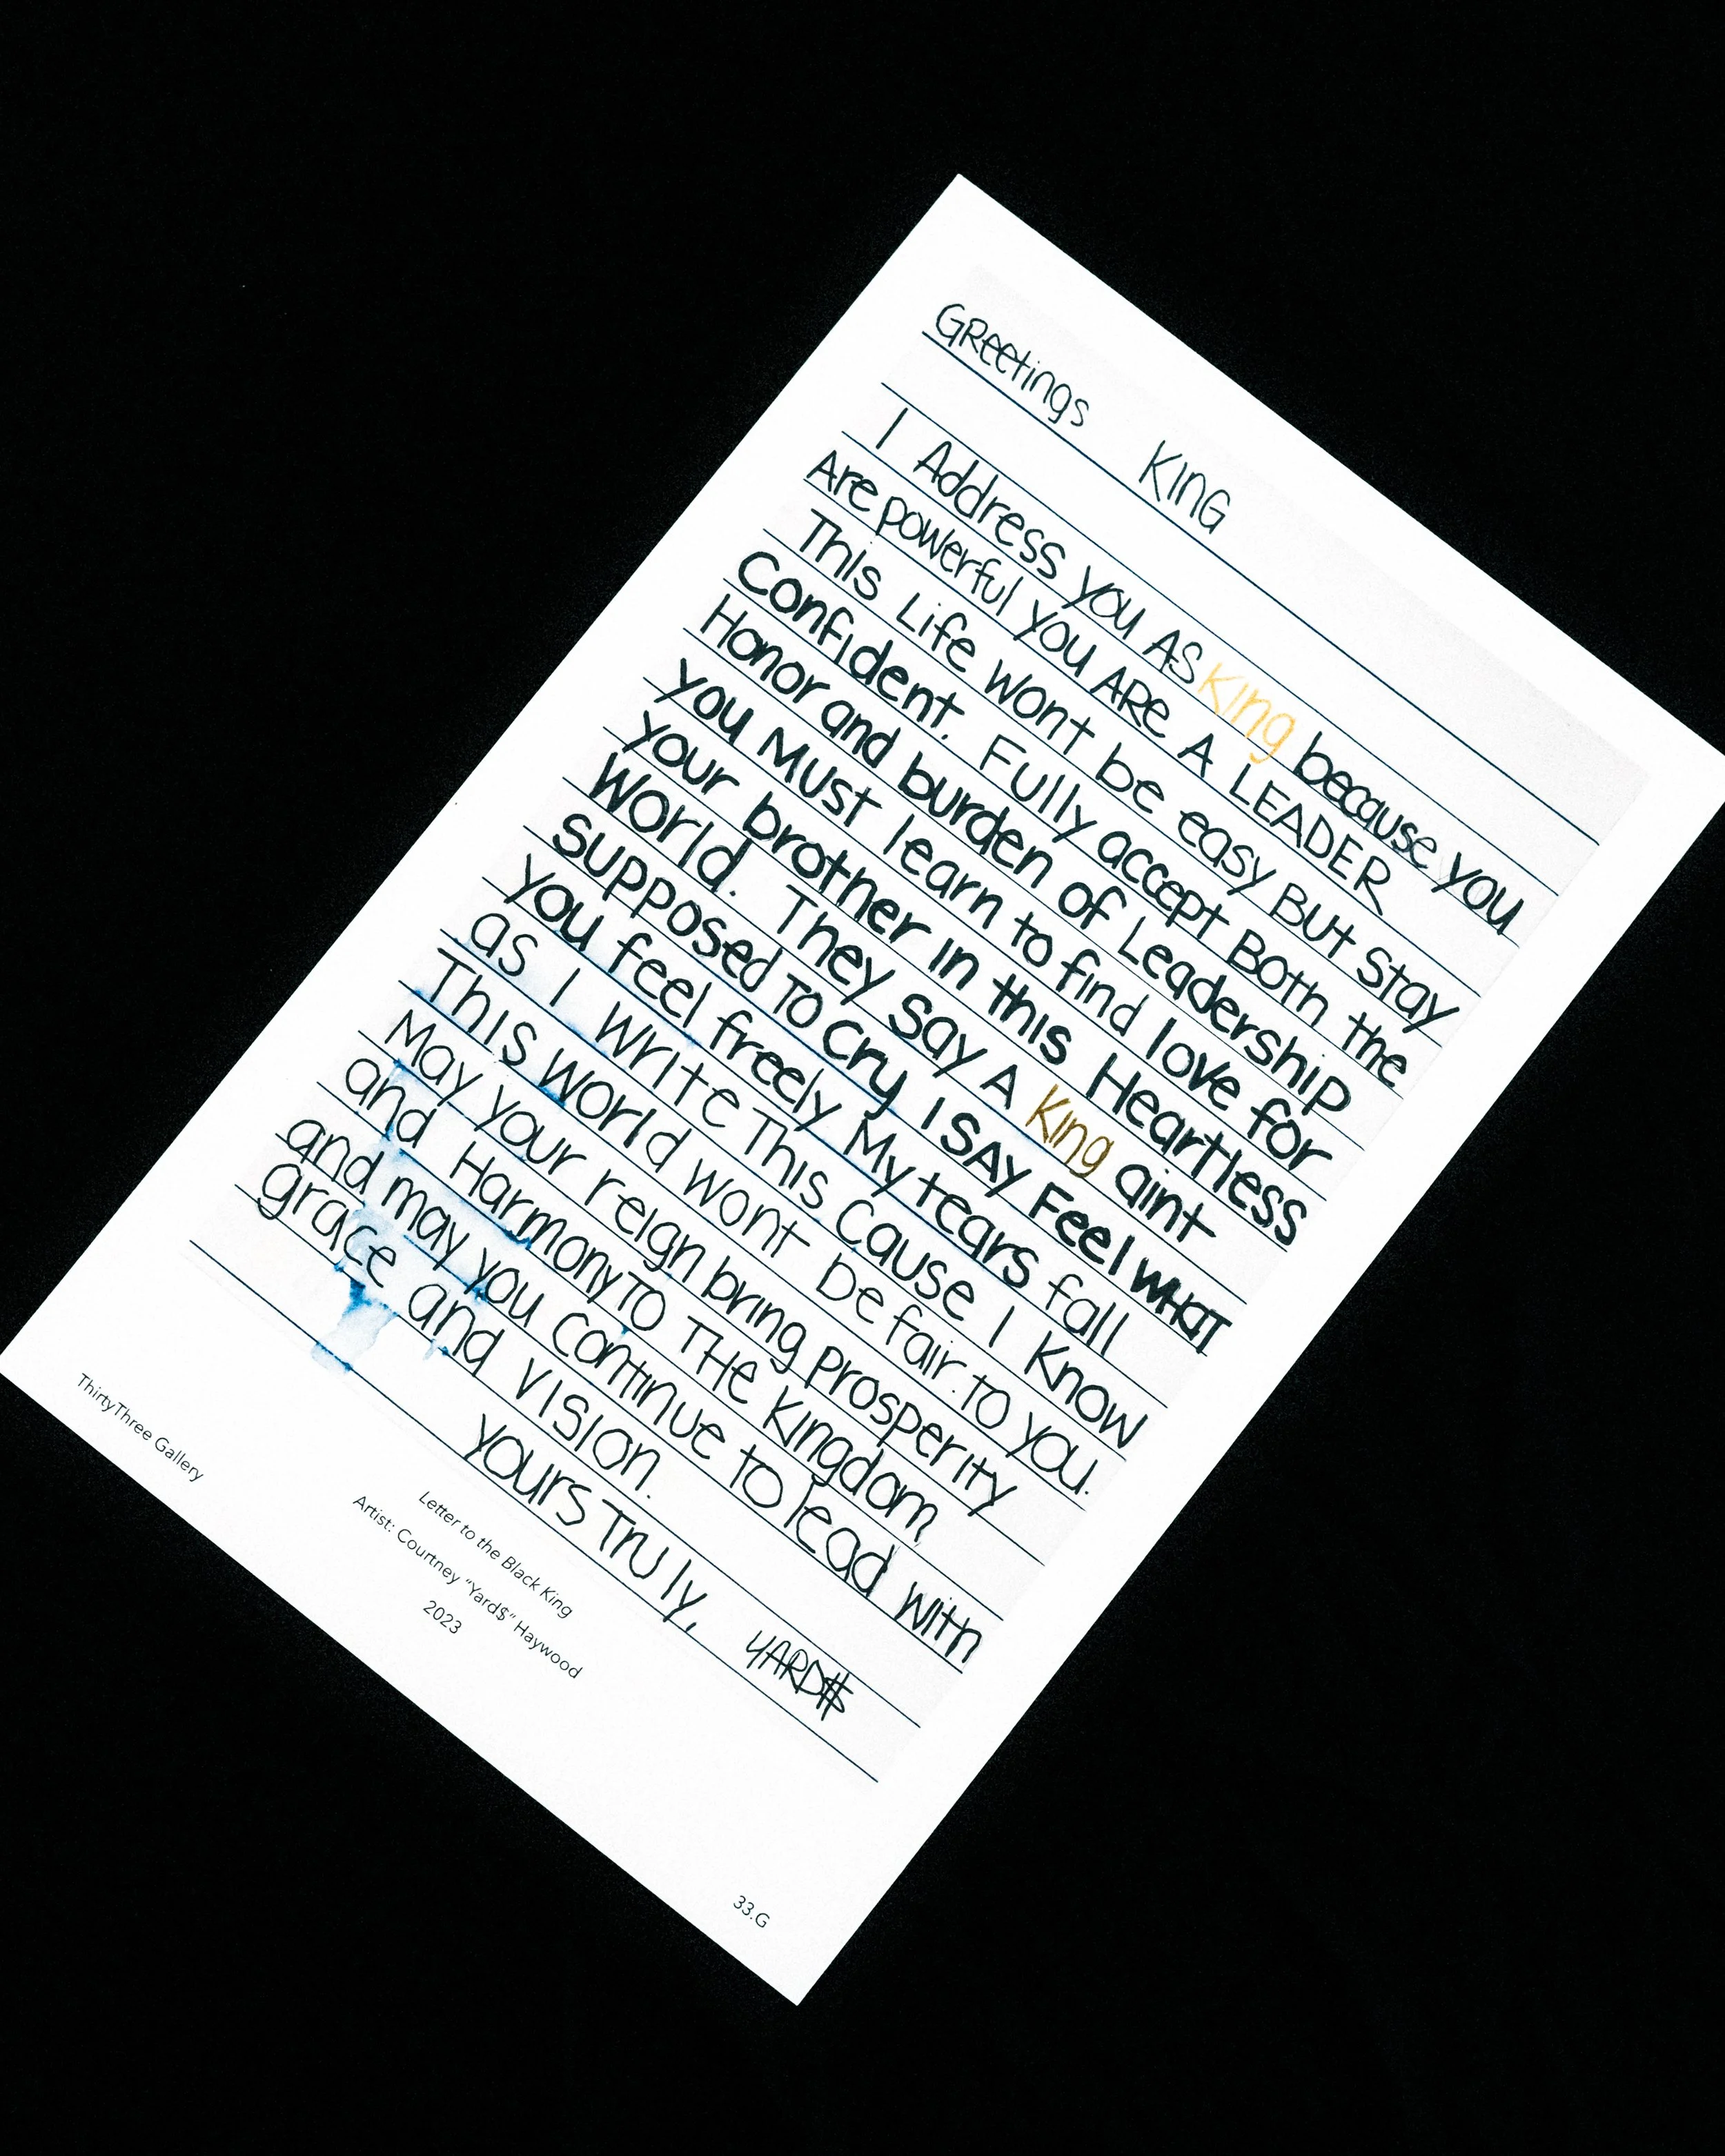 GReetings KING
I Address you AS King because you
Are powerful you ARe A LEADER
This Life wont be easy But Stay
Confident. Fully accept Both the
Honor and burden of Leadership
you Must learn to find love for
your brother in this Heartless
World. They say A King aint
supposed To cry I SAy Feel WHAT
you feel freely My tears fall
as I Write This Cause I Know
This World wont be fair to you.
May your reign bring prosperity
and Harmony TO THe Kingdom
and may you continue to lead with
grace and vision.
yours Truly, YARD$
ThirtyThree Gallery
Letter to the Black King
Artist: Courtney "Yard$" Haywood
2023
33.G